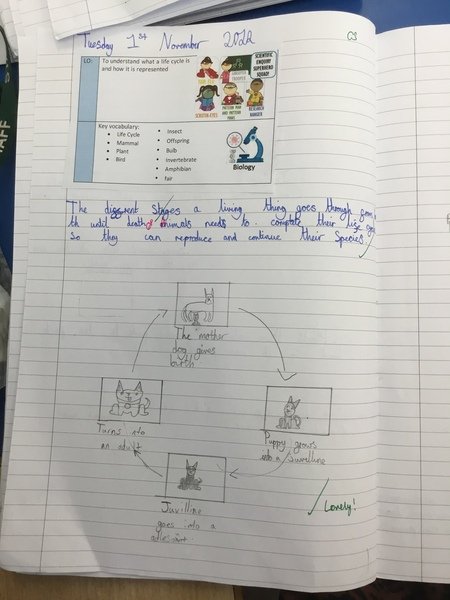 Tuesday 1st November 2022
C3
LO:
To understand what a life cycle is
and how it is represented
SCIENTIFIC
ENQUIRY
SUPERHERO
SQUAD!
RESEARCH
RANGER
Key vocabulary:
Life Cycle
Mammal
Plant
Bird
Insect
Offspring
Bulb
Invertebrate
Amphibian
fair
Biology
The different stages a living thing goes through from
until death animals needs to complete their life
So they can reproduce and continue their Species.
The mother
dog gives
birth
Puppy grows
into a Juvelline
Juvilline
goes into a
Turns into
an adult
Lovely!